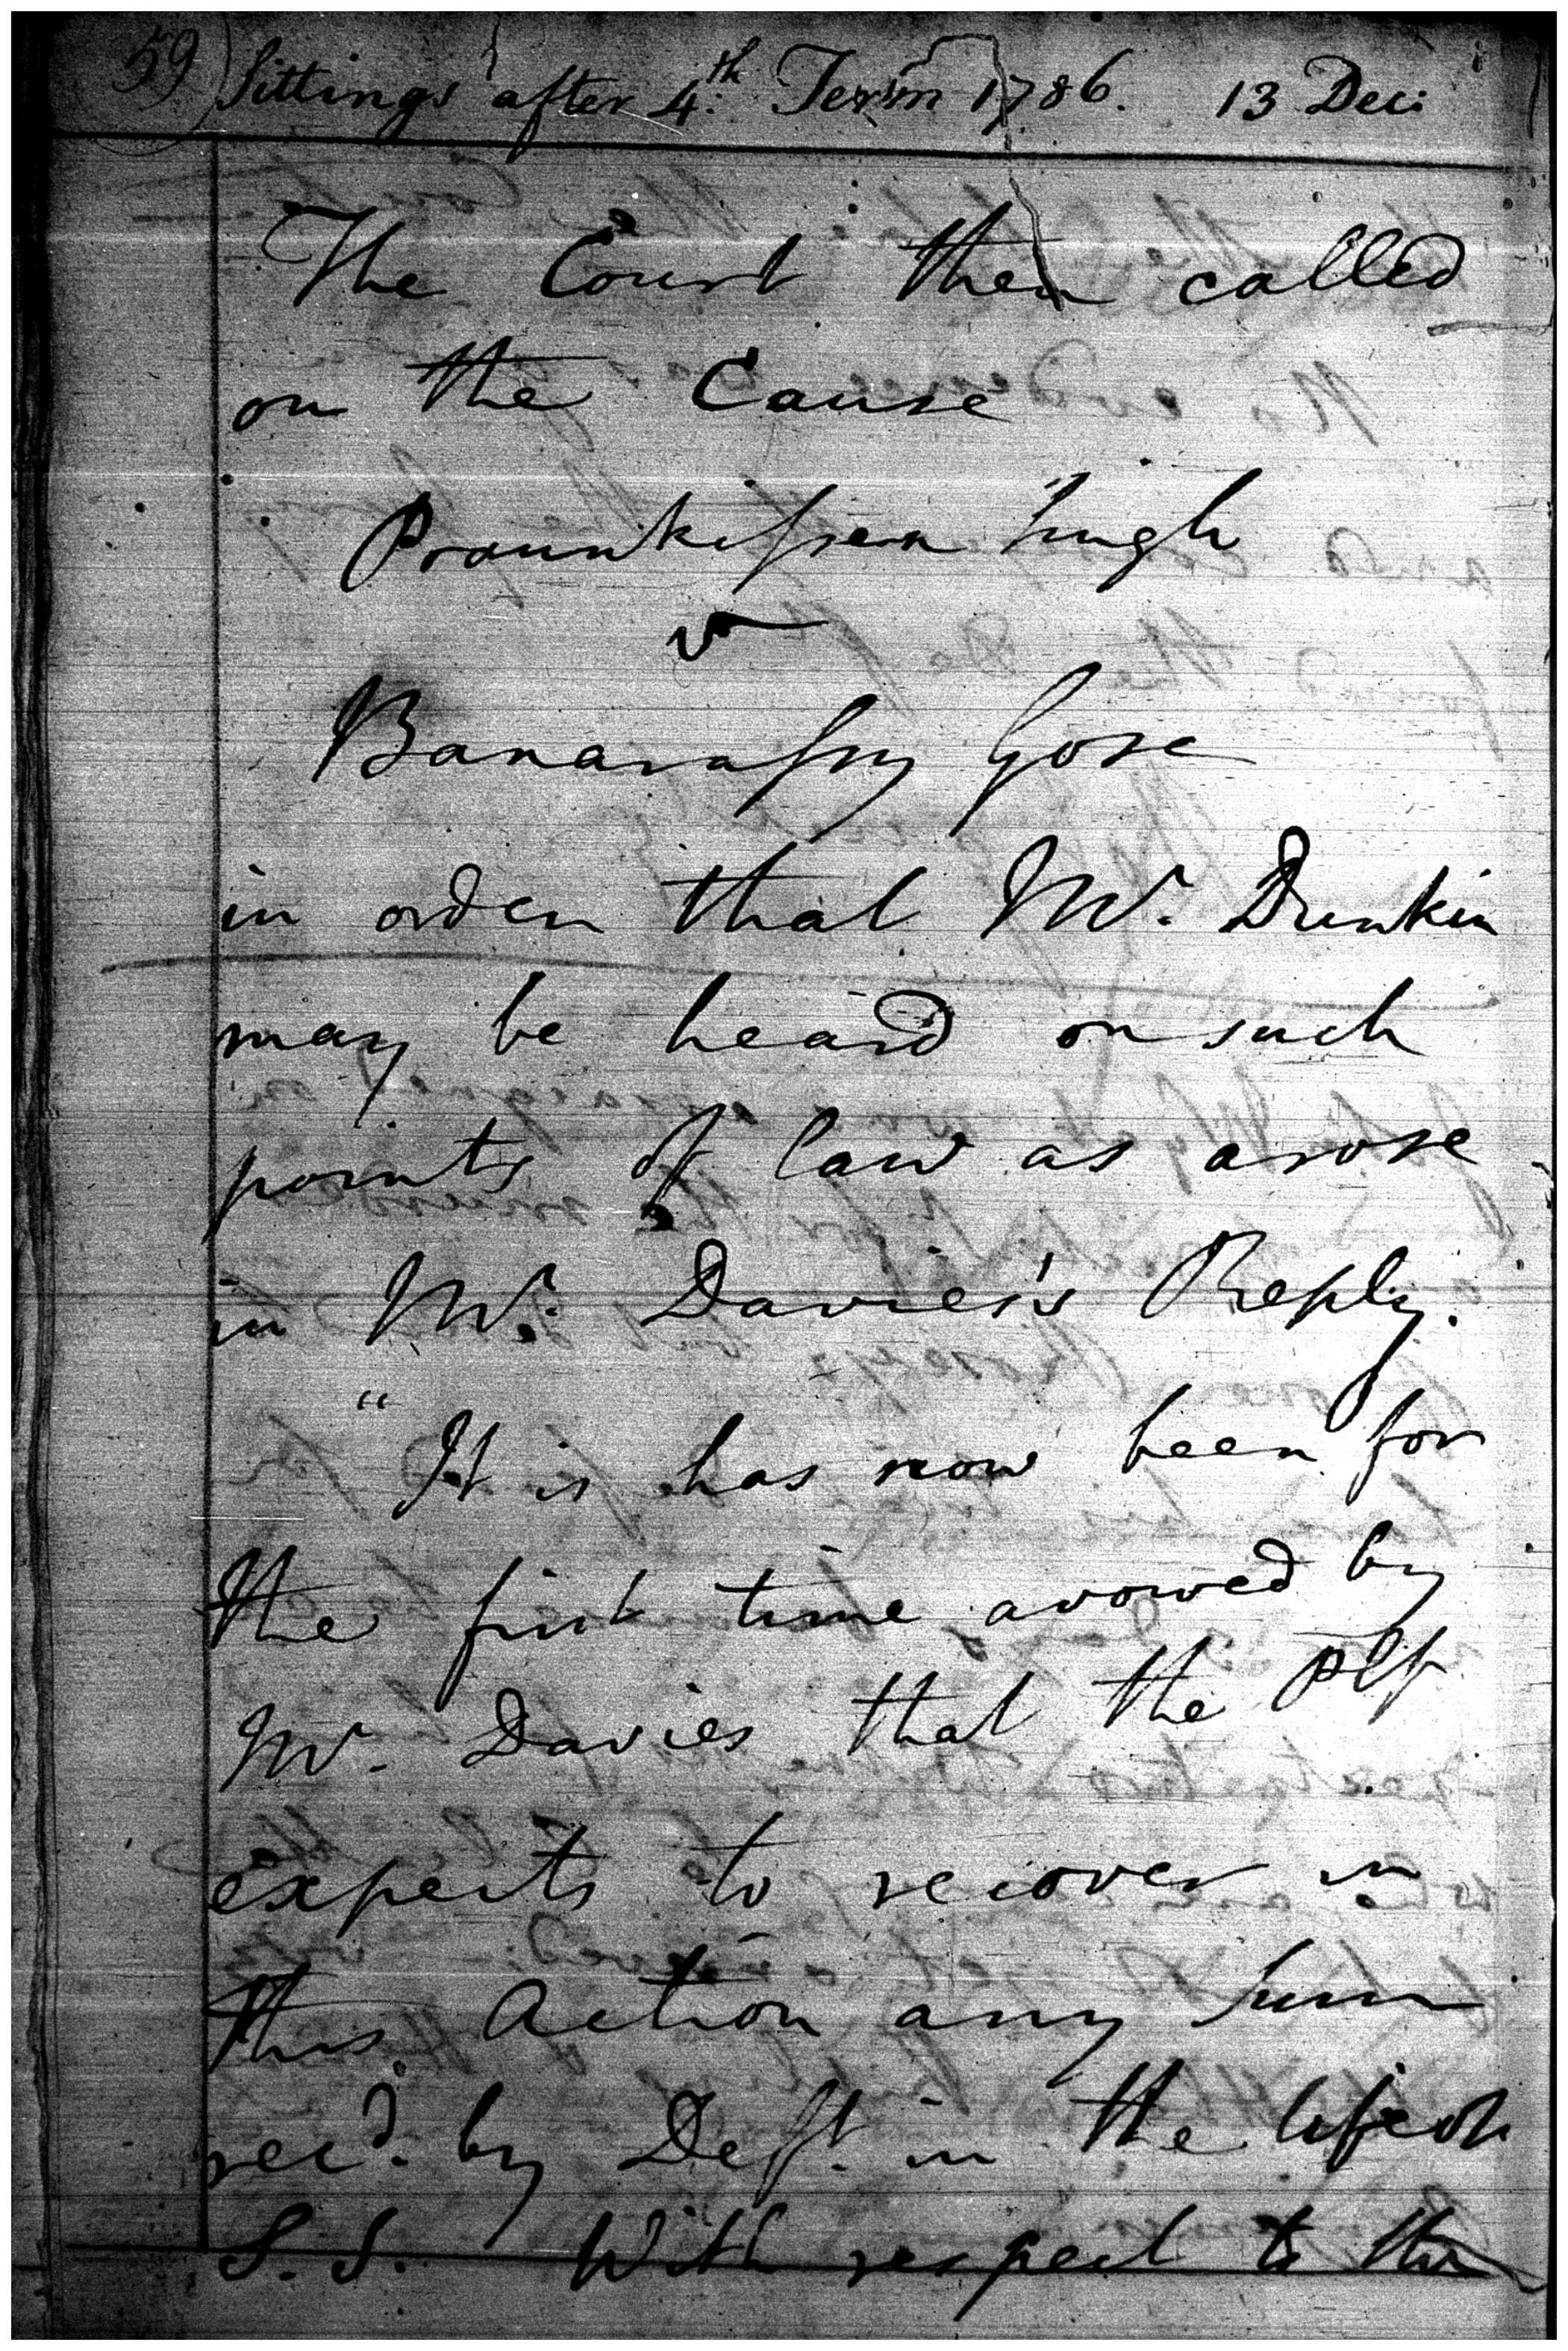 59) Sittings after 4.th Term 1786. 13 Dec:
The Court then called
on the Cause
Praunkissen Singh
v
Banarassy Gose
in order that Mr. Dunkin
may be heard on such
points of law as arose
in Mr. Davies's Reply.
"It is has now been for
the first time avowed by
Mr. Davies that the Plf
expects to recover in
this action any Sum
recd. by Deft. in the life of
S. S. With respect to the